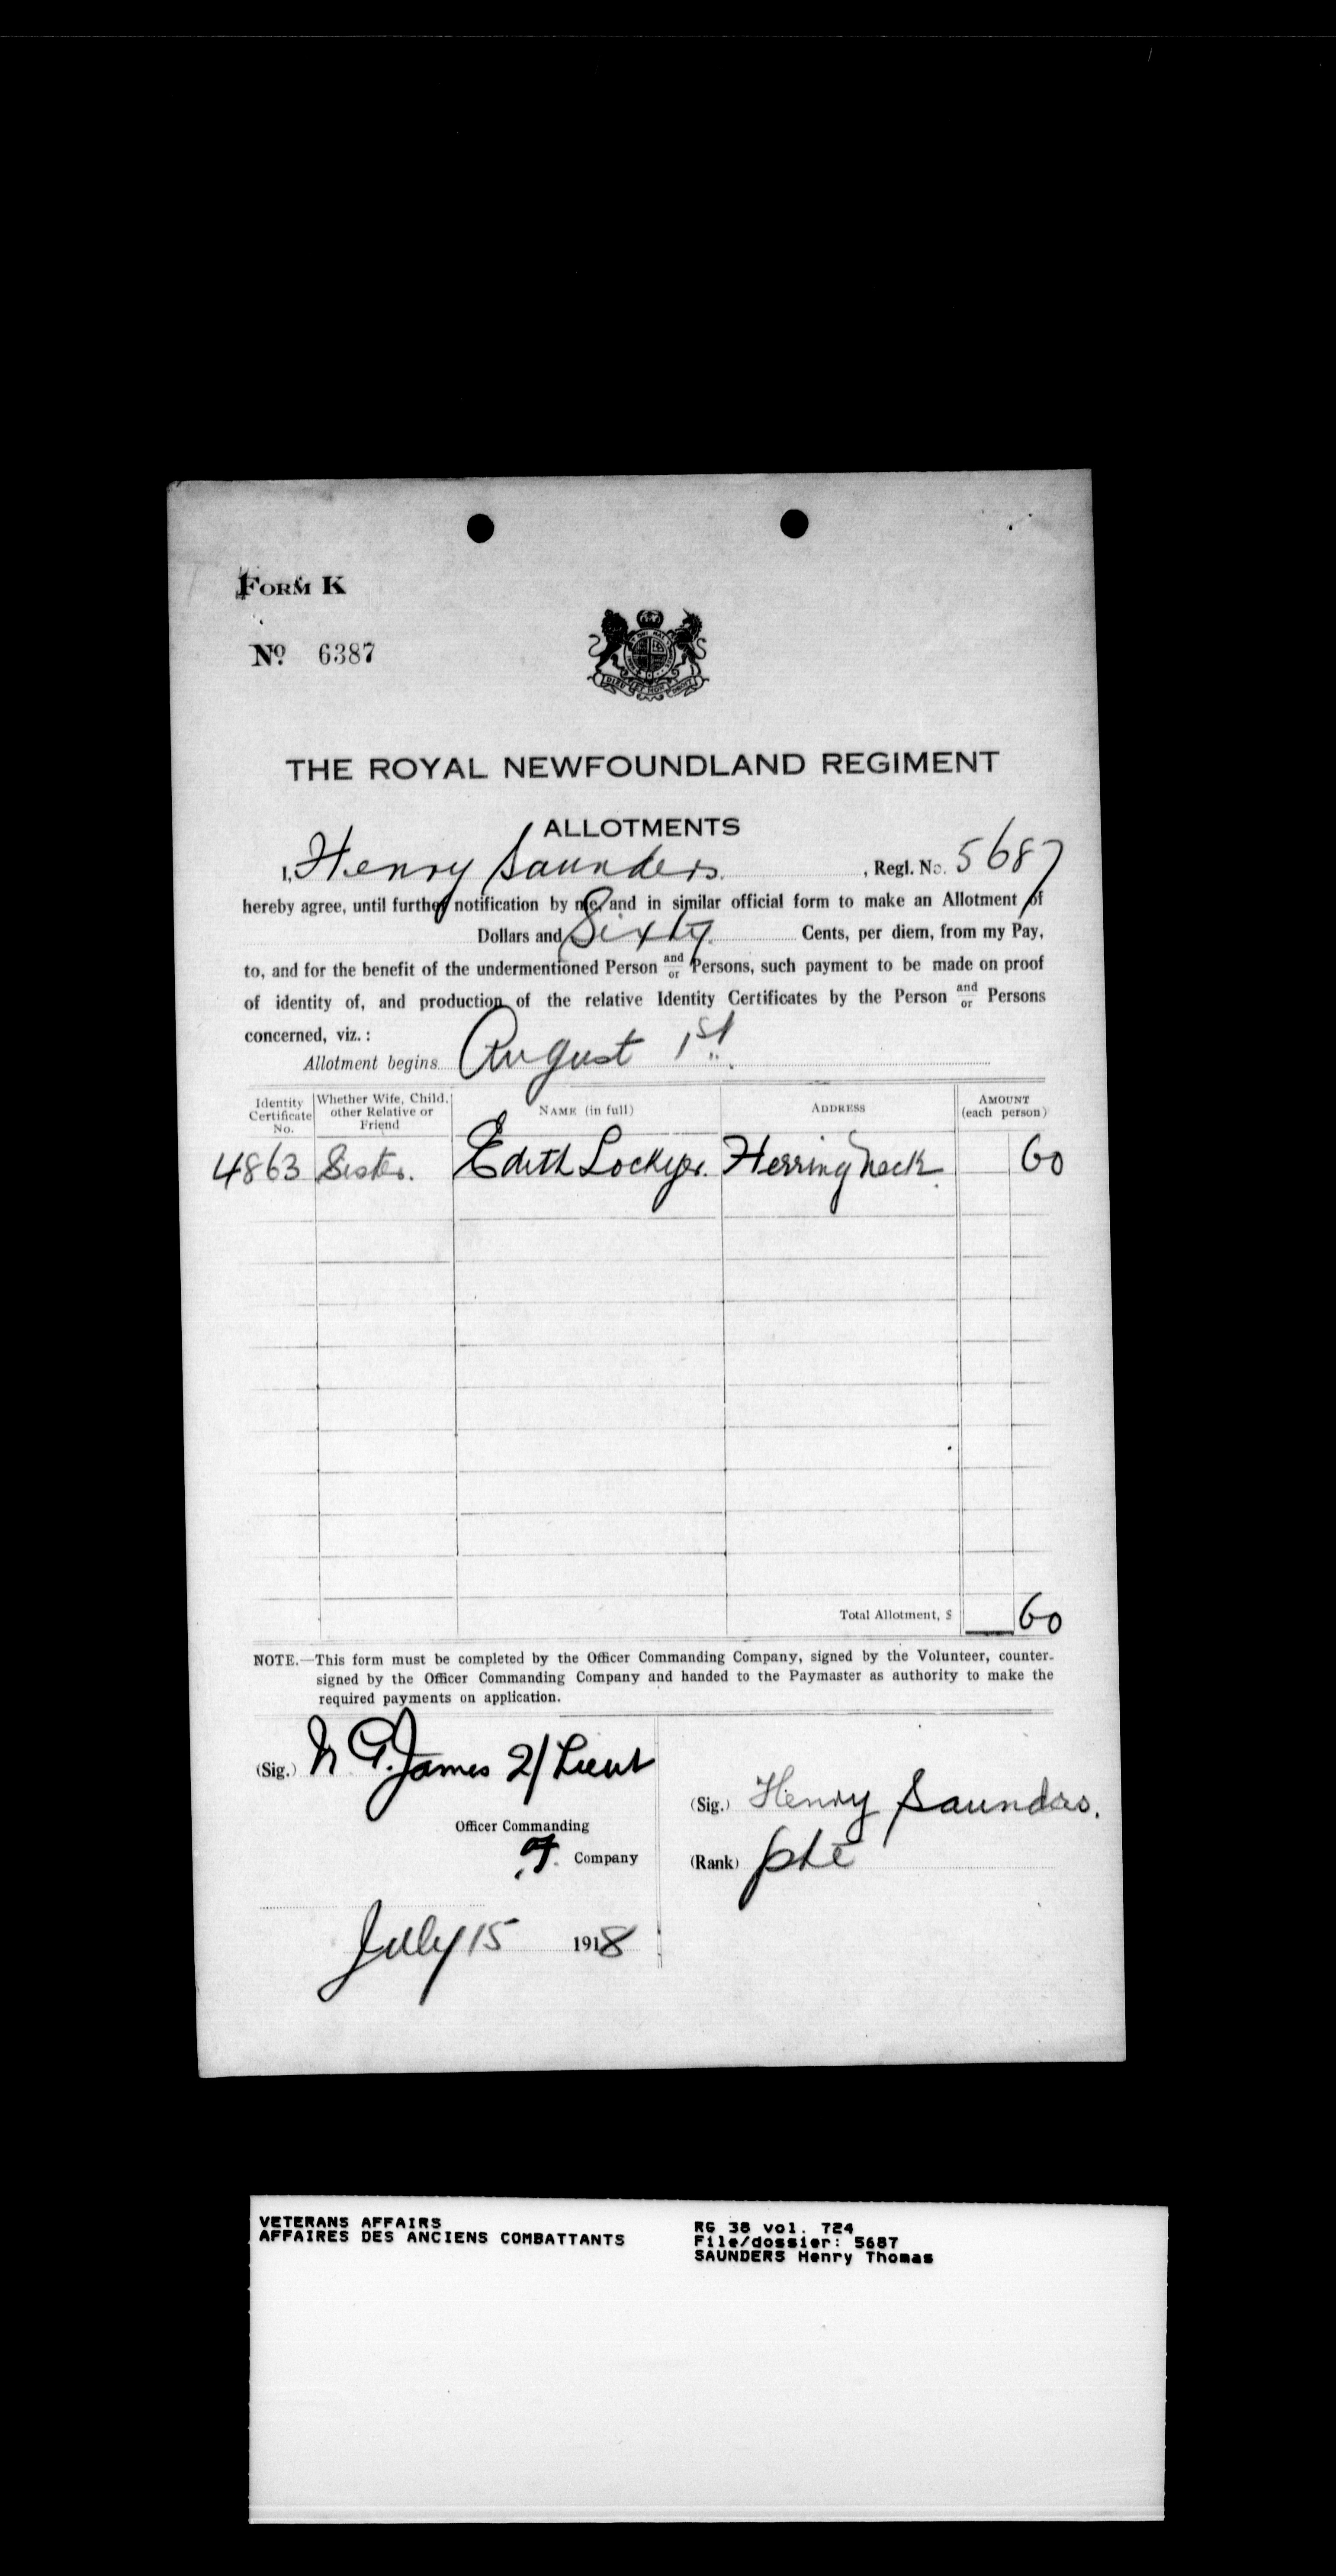 FORM K
No. 6387
THE ROYAL NEWFOUNDLAND REGIMENT
ALLOTMENTS
I, Henry Saunders, Regl. No. 5687
hereby agree, until further notification by me, and in similar official form to make an Allotment of
Dollars and Sixty Cents, per diem, from my Pay,
to, and for the benefit of the undermentioned Person and/or Persons, such payment to be made on proof
of identity of, and production of the relative Identity Certificates by the Person and/or Persons
concerned, viz.:
Allotment begins August 1st
Identity Certificate No. Whether Wife, Child, other Relative or Friend NAME (in full) ADDRESS AMOUNT (each person)
4863 Sister. Edith Lockyer. Herring Neck. 60
Total Allotment, $ 60
NOTE.—This form must be completed by the Officer Commanding Company, signed by the Volunteer, counter-
signed by the Officer Commanding Company and handed to the Paymaster as authority to make the
required payments on application.
(Sig.) James 2/Lieut
(Sig.) Henry Saunders.
Officer Commanding
Company
(Rank) pte
July 15 1918
VETERANS AFFAIRS
AFFAIRES DES ANCIENS COMBATTANTS
RG 38 vol. 724
File/dossier: 5687
SAUNDERS Henry Thomas